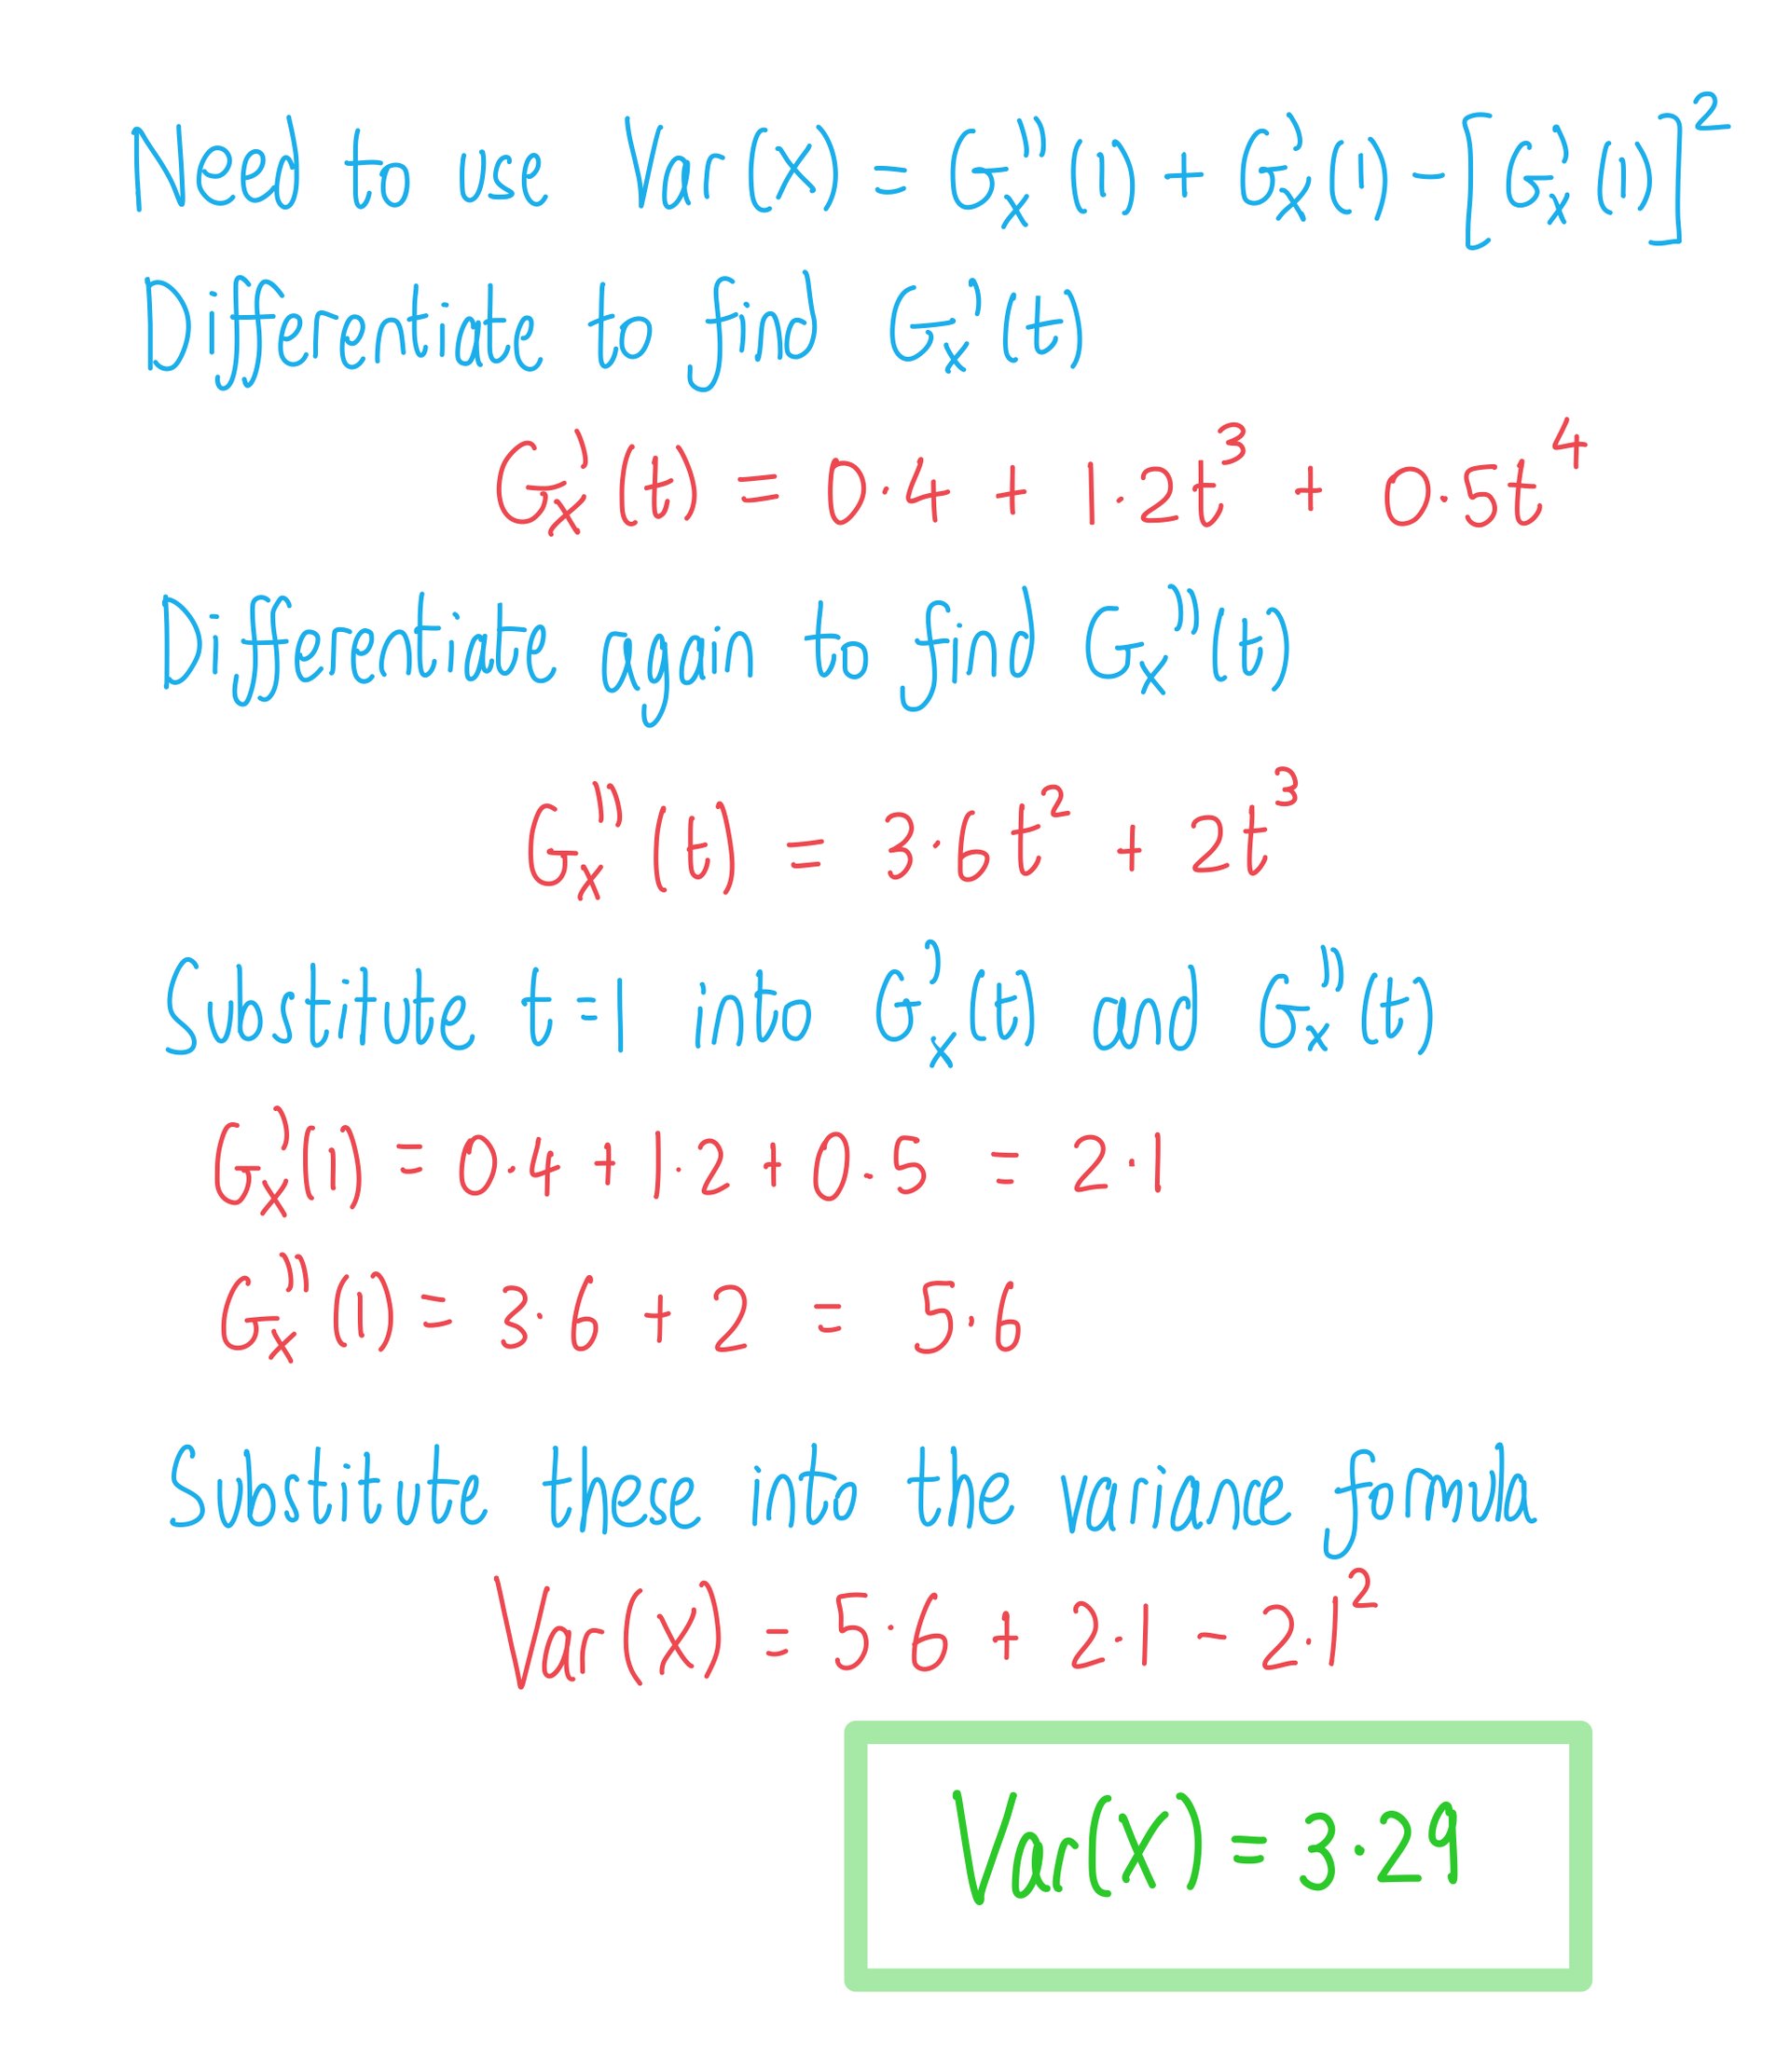 Need to use Var(X) = Gₓ''(1) + Gₓ'(1) - [Gₓ'(1)]²
Differentiate to find Gₓ'(t)
Gₓ'(t) = 0.4 + 1.2t³ + 0.5t⁴
Differentiate again to find Gₓ''(t)
Gₓ''(t) = 3.6t² + 2t³
Substitute t = 1 into Gₓ'(t) and Gₓ''(t)
Gₓ'(1) = 0.4 + 1.2 + 0.5 = 2.1
Gₓ''(1) = 3.6 + 2 = 5.6
Substitute these into the variance formula
Var(X) = 5.6 + 2.1 - 2.1²
Var(X) = 3.29